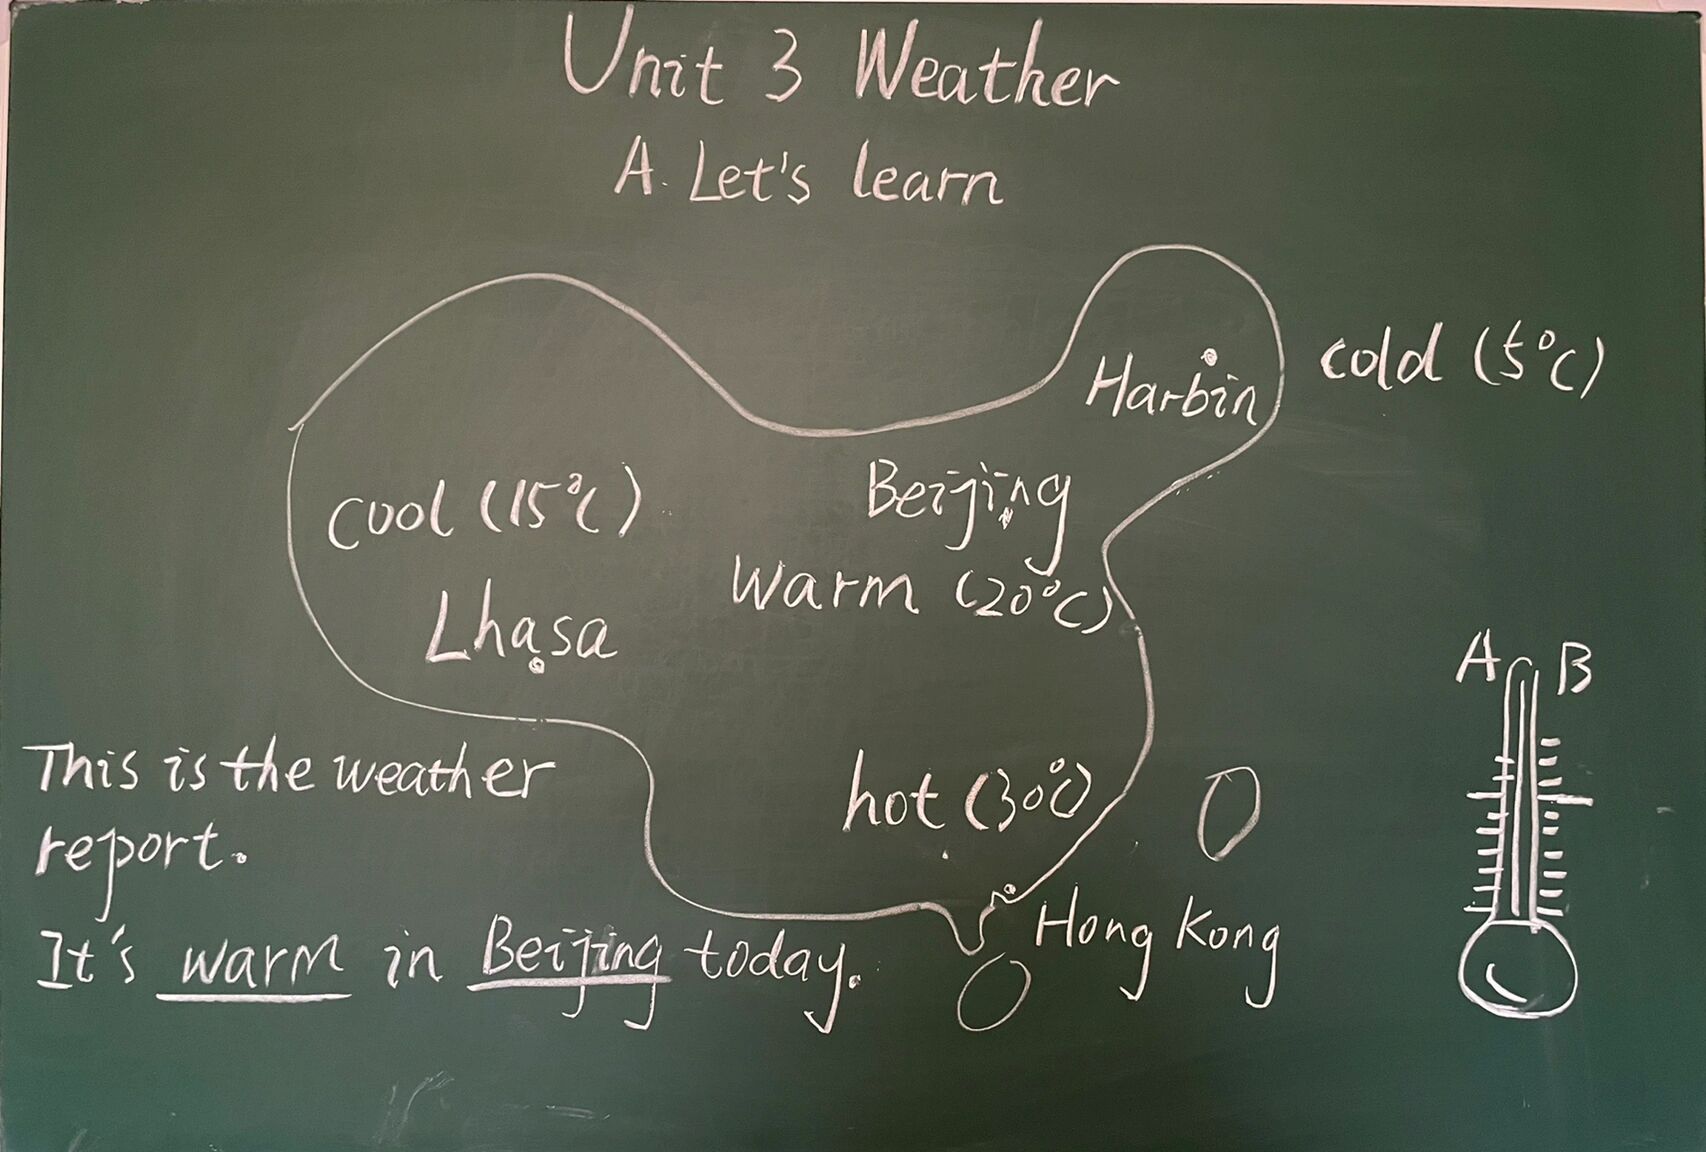 Unit 3 Weather
A. Let's learn
Harbin
cold (5°C)
Beijing
warm (20°C)
cool (15°C)
Lhasa
hot (30°C)
Hong Kong
A B
This is the weather
report.
It's warm in Beijing today.